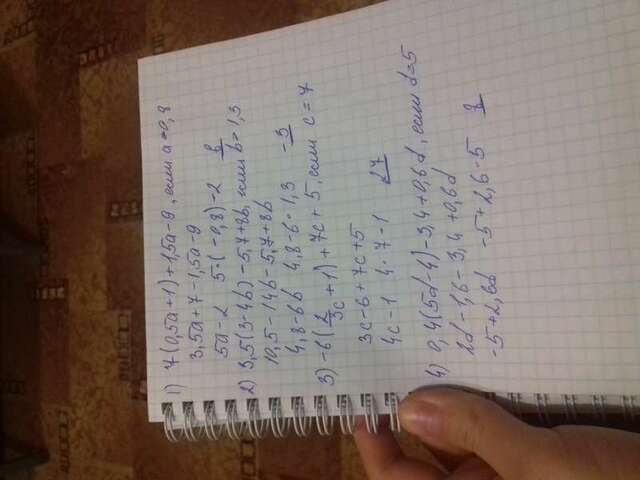 1) 7(0,5a+1)+1,5a-9, если a=0,8
3,5a+7-1,5a-9
5a-2 5·(-0,8)-2 6
2) 3,5(3-4b)-5,7+8b, если b=1,3
10,5-14b-5,7+8b
4,8-6b 4,8-6·1,3 -3
3) -6(2/3c+1)+7c+5, если c=7
3c-6+7c+5
4c-1 4·7-1 27
4) 0,4(5d-4)-3,4+0,6d, если d=5
2d-1,6-3,4+0,6d
-5+2,6d -5+2,6·5